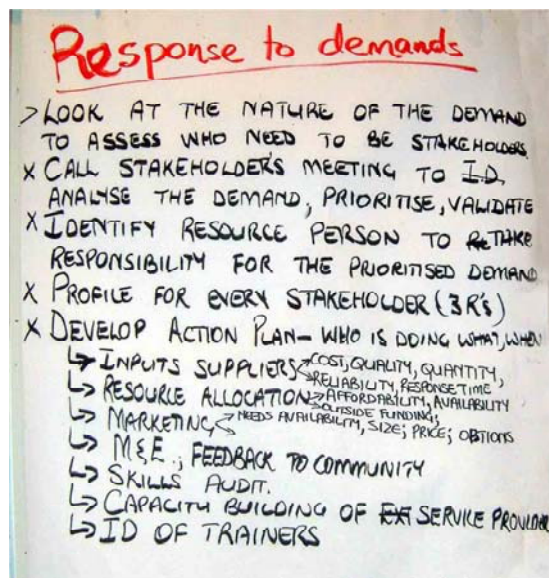 Response to demands
> LOOK AT THE NATURE OF THE DEMAND
TO ASSESS WHO NEED TO BE STAKEHOLDERS
X CALL STAKEHOLDER'S MEETING TO I.D,
ANALYSE THE DEMAND, PRIORITISE, VALIDATE
X IDENTIFY RESOURCE PERSON TO TAKE
RESPONSIBILITY FOR THE PRIORITISED DEMAND
X PROFILE FOR EVERY STAKEHOLDER (3 R's)
X DEVELOP ACTION PLAN – WHO IS DOING WHAT, WHEN
↳ INPUTS SUPPLIERS COST, QUALITY, QUANTITY,
RELIABILITY, RESPONSE TIME
↳ RESOURCE ALLOCATION AFFORDABILITY, AVAILABILITY
OUTSIDE FUNDING;
↳ MARKETING NEEDS AVAILABILITY, SIZE; PRICE; OPTIONS
↳ M&E ; FEEDBACK TO COMMUNITY
↳ SKILLS AUDIT.
↳ CAPACITY BUILDING OF SERVICE PROVIDER
↳ ID OF TRAINERS